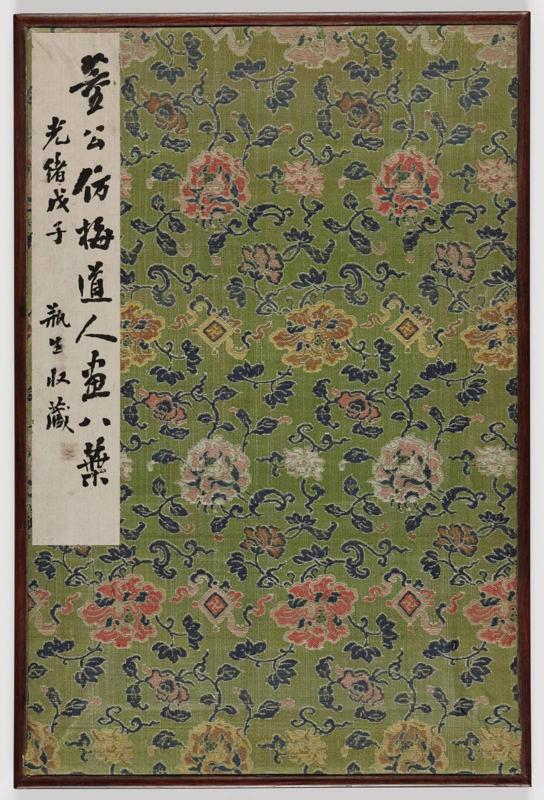 公仿梅道人畫八葉
光緒戊子
瓶生收藏